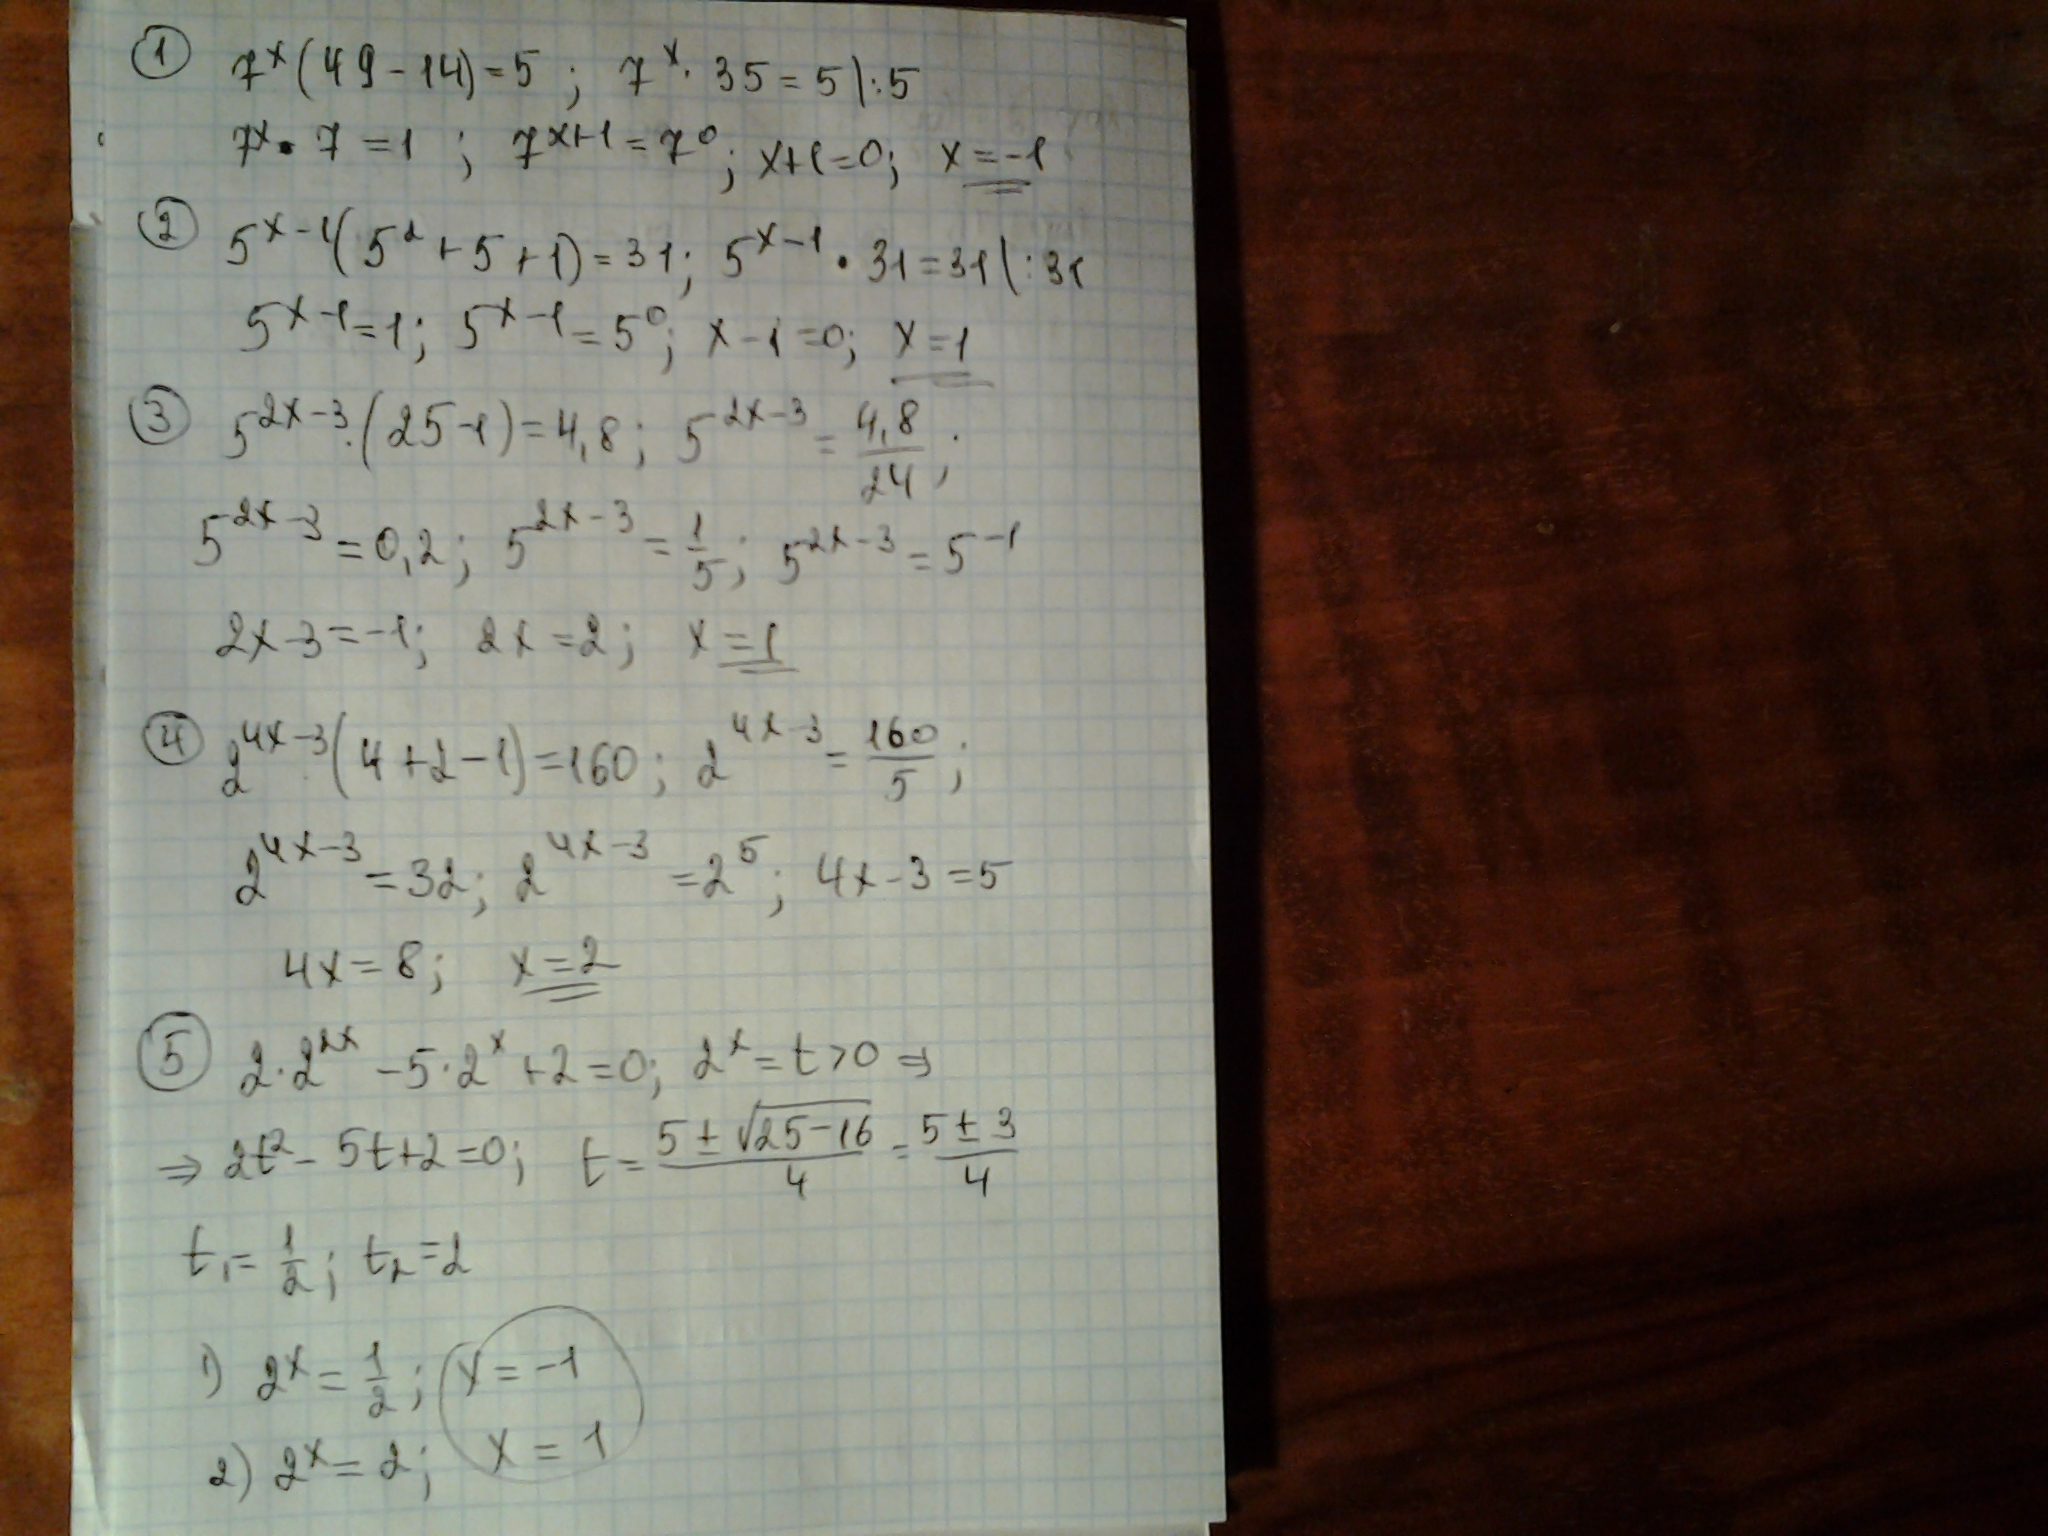 ① 7^x(49-14)=5; 7^x·35=5|:5
7^x·7=1; 7^{x+1}=7^0; x+1=0; x=-1
② 5^{x-1}(5^2+5+1)=31; 5^{x-1}·31=31|:31
5^{x-1}=1; 5^{x-1}=5^0; x-1=0; x=1
③ 5^{2x-3}·(25-1)=4,8; 5^{2x-3}=\frac{4,8}{24};
5^{2x-3}=0,2; 5^{2x-3}=\frac{1}{5}; 5^{2x-3}=5^{-1}
2x-3=-1; 2x=2; x=1
④ 2^{4x-3}(4+2-1)=160; 2^{4x-3}=\frac{160}{5};
2^{4x-3}=32; 2^{4x-3}=2^5; 4x-3=5
4x=8; x=2
⑤ 2·2^{2x}-5·2^x+2=0; 2^x=t>0 ⇒
⇒ 2t^2-5t+2=0; t=\frac{5±\sqrt{25-16}}{4}=\frac{5±3}{4}
t_1=\frac{1}{2}; t_2=2
1) 2^x=\frac{1}{2}; x=-1
2) 2^x=2; x=1